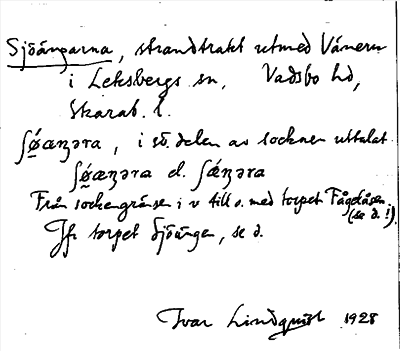 Sjöängarna, strandtrakt utmed Vänern
i Leksbergs sn, Vadsbo hd,
Skarab. l.
ʃǿæŋəra, i sö. delen av socknen uttalat
ʃǿæŋəra el. ʃǽŋəra
Från sockengränsen i v till o. med torpet Fågelåsen
(se d.!).
Jfr torpet Sjöängen, se d.
Ivar Lindquist 1928